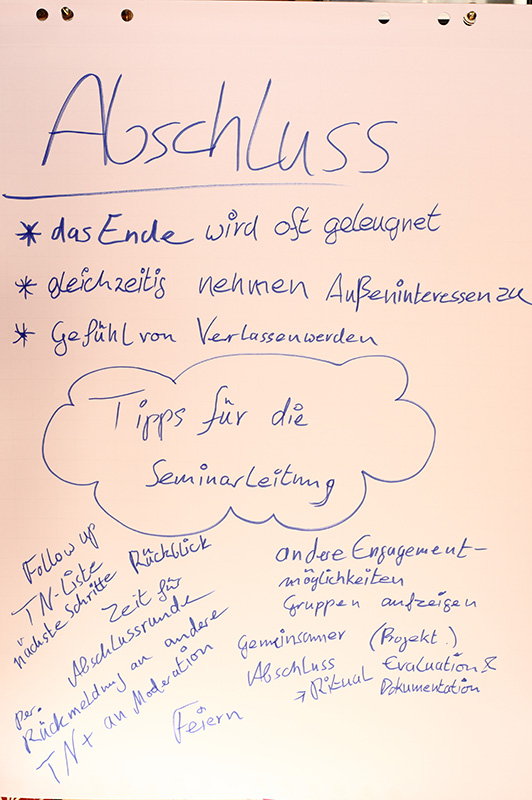 Abschluss
* das Ende wird oft geleugnet
* gleichzeitig nehmen Außeninteressen zu
* Gefühl von Verlassenwerden
Tipps für die
Seminarleitung
Follow up
TN-Liste
nächste Schritte
Rückblick
Zeit für
Abschlussrunde
per.
Rückmeldung an andere
TN + an Moderation
Feiern
andere Engagement-
möglichkeiten
Gruppen aufzeigen
gemeinsamer
Abschluss
→ Ritual
(Projekt.)
Evaluation &
Dokumentation